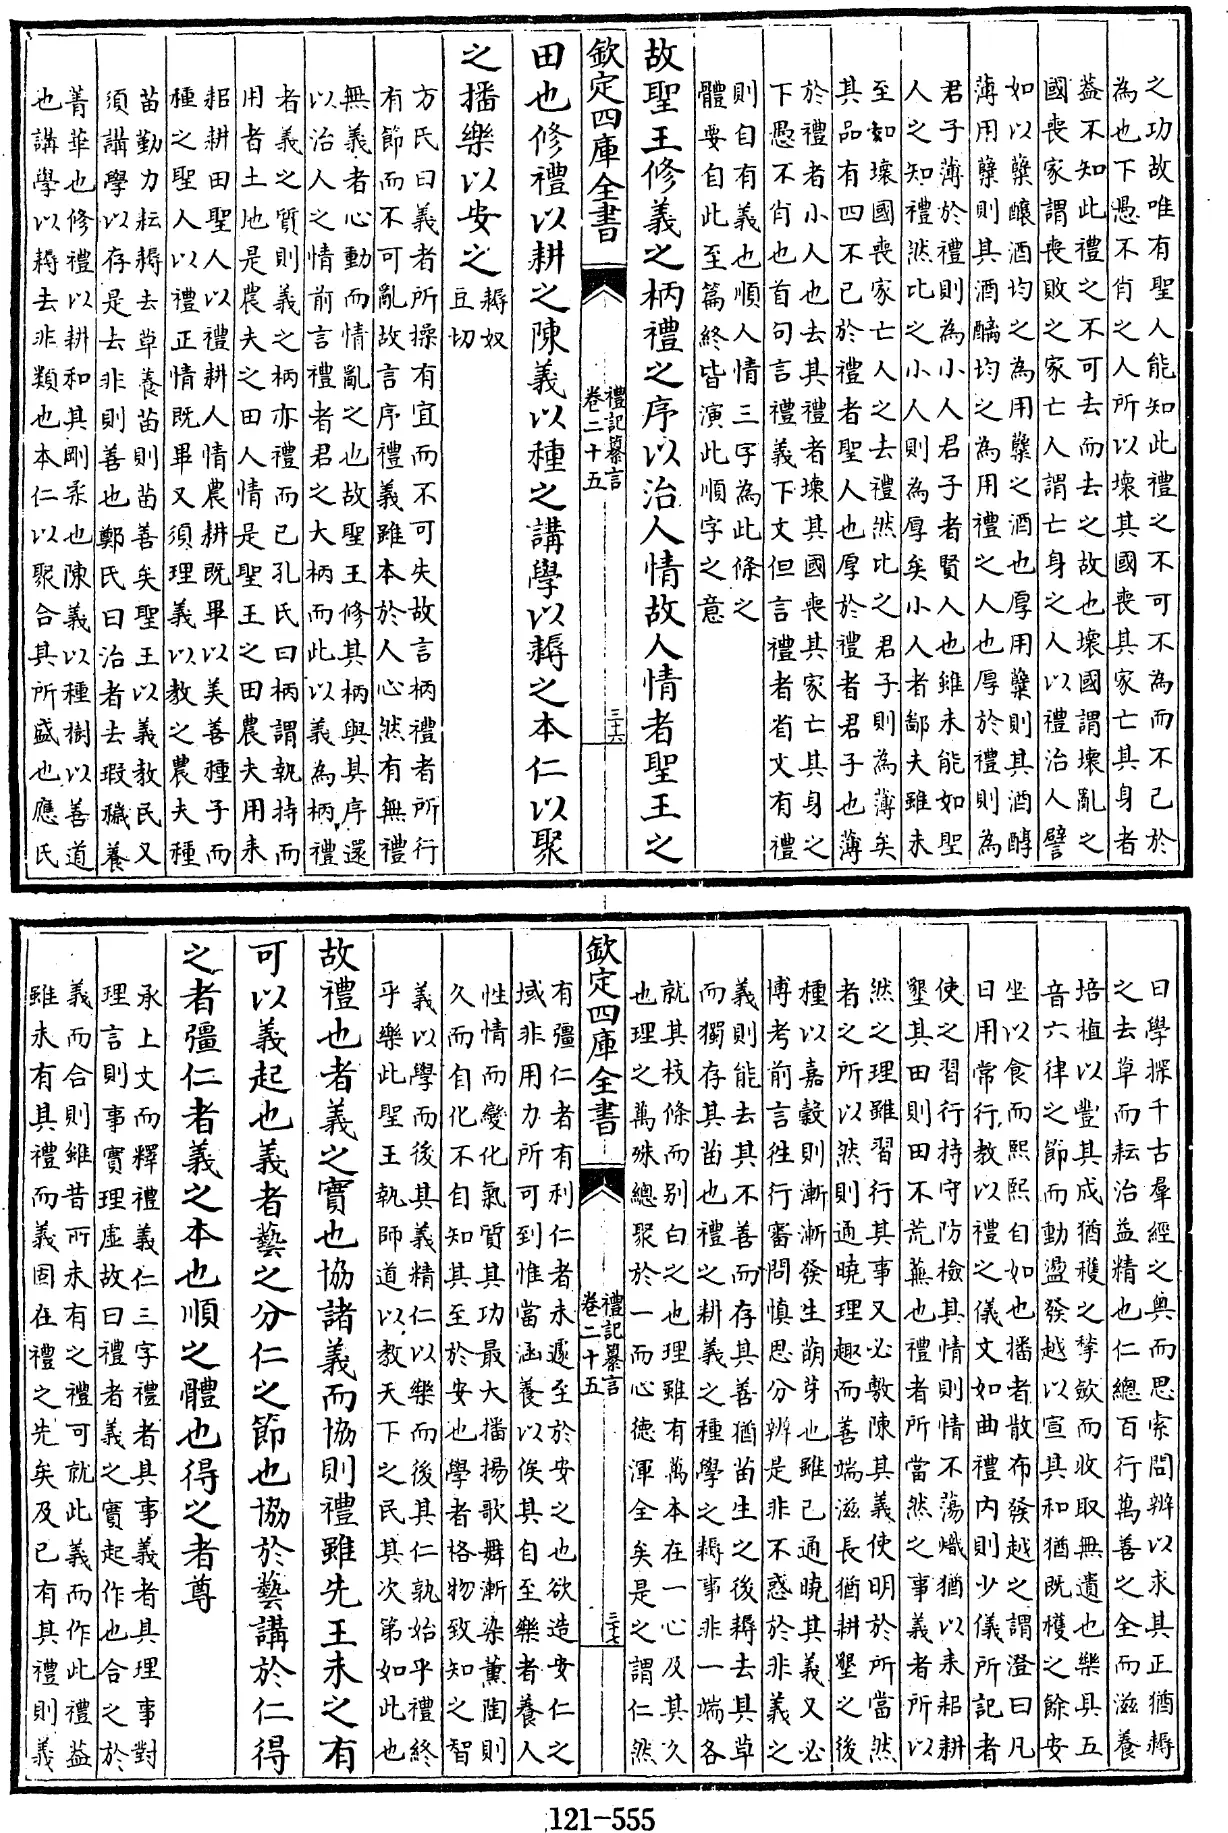 之功故唯有聖人能知此禮之不可不為而不已於
為也下愚不肖之人所以壞其國喪其家亡其身者
葢不知此禮之不可去而去之故也壞國謂壞亂之
國喪家謂喪敗之家亡人謂亡身之人以禮治人譬
如以糵釀酒均之為用糵之酒也厚用糵則其酒醇
薄用糵則其酒醨均之為用禮之人也厚於禮則為
君子薄於禮則為小人君子者賢人也雖未能如聖
人之知禮然比之小人則為厚矣小人者鄙夫雖未
至如壞國喪家亡人之去禮然比之君子則為薄矣
其品有四不已於禮者聖人也厚於禮者君子也薄
於禮者小人也去其禮者壞其國喪其家亡其身之
下愚不肖也首句言禮義下文但言禮者省文有禮
則自有義也順人情三字為此條之
體要自此至篇終皆演此順字之意
故聖王修義之柄禮之序以治人情故人情者聖王之
欽定四庫全書
禮記纂言
卷二十五
三十六
田也修禮以耕之陳義以種之講學以耨之本仁以聚
之播樂以安之
耨奴
豆切
方氏曰義者所操有宜而不可失故言柄禮者所行
有節而不可亂故言序禮義雖本於人心然有無禮
無義者心動而情亂之也故聖王修其柄與其序還
以治人之情前言禮者君之大柄而此以義為柄禮
者義之質則義之柄亦禮而已孔氏曰柄謂執持而
用者土地是農夫之田人情是聖王之田農夫用耒
耜耕田聖人以禮耕人情農耕既畢以美善種子而
種之聖人以禮正情既畢又須理義以教之農夫種
苗勤力耘耨去草養苗則苗善矣聖王以義教民又
須講學以存是去非則善也鄭氏曰治者去瑕穢養
菁華也修禮以耕和其剛柔也陳義以種樹以善道
也講學以耨去非類也本仁以聚合其所盛也應氏
曰學探千古羣經之奥而思索問辨以求其正猶耨
之去草而耘治益精也仁總百行萬善之全而滋養
培植以豐其成猶穫之摰斂而收取無遺也樂具五
音六律之節而動盪發越以宣其和猶既穫之餘安
坐以食而熙熙自如也播者散布發越之謂澄曰凡
日用常行教以禮之儀文如曲禮内則少儀所記者
使之習行持守防檢其情則情不蕩熾猶以耒耜耕
墾其田則田不荒蕪也禮者所當然之事義者所以
然之理雖習行其事又必敷陳其義使明於所當然
者之所以然則通曉理趣而善端滋長猶耕墾之後
種以嘉穀則漸漸發生萌芽也雖已通曉其義又必
博考前言徃行審問慎思分辨是非不惑於非義之
義則能去其不善而存其善猶苗生之後耨去其草
而獨存其苗也禮之耕義之種學之耨事非一端各
就其枝條而别白之也理雖有萬本在一心及其久
也理之萬殊總聚於一而心德渾全矣是之謂仁然
欽定四庫全書
禮記纂言
卷二十五
三十七
有彊仁者有利仁者未遽至於安之也欲造安仁之
域非用力所可到惟當涵養以俟其自至樂者養人
性情而變化氣質其功最大播揚歌舞漸染薰陶則
久而自化不自知其至於安也學者格物致知之智
義以學而後其義精仁以樂而後其仁孰始乎禮終
乎樂此聖王執師道以教天下之民其次第如此也
故禮也者義之實也協諸義而協則禮雖先王未之有
可以義起也義者藝之分仁之節也協於藝講於仁得
之者彊仁者義之本也順之體也得之者尊
承上文而釋禮義仁三字禮者其事義者其理事對
理言則事實理虚故曰禮者義之實起作也合之於
義而合則雖昔所未有之禮可就此義而作此禮葢
雖未有其禮而義固在禮之先矣及已有其禮則義
121-555